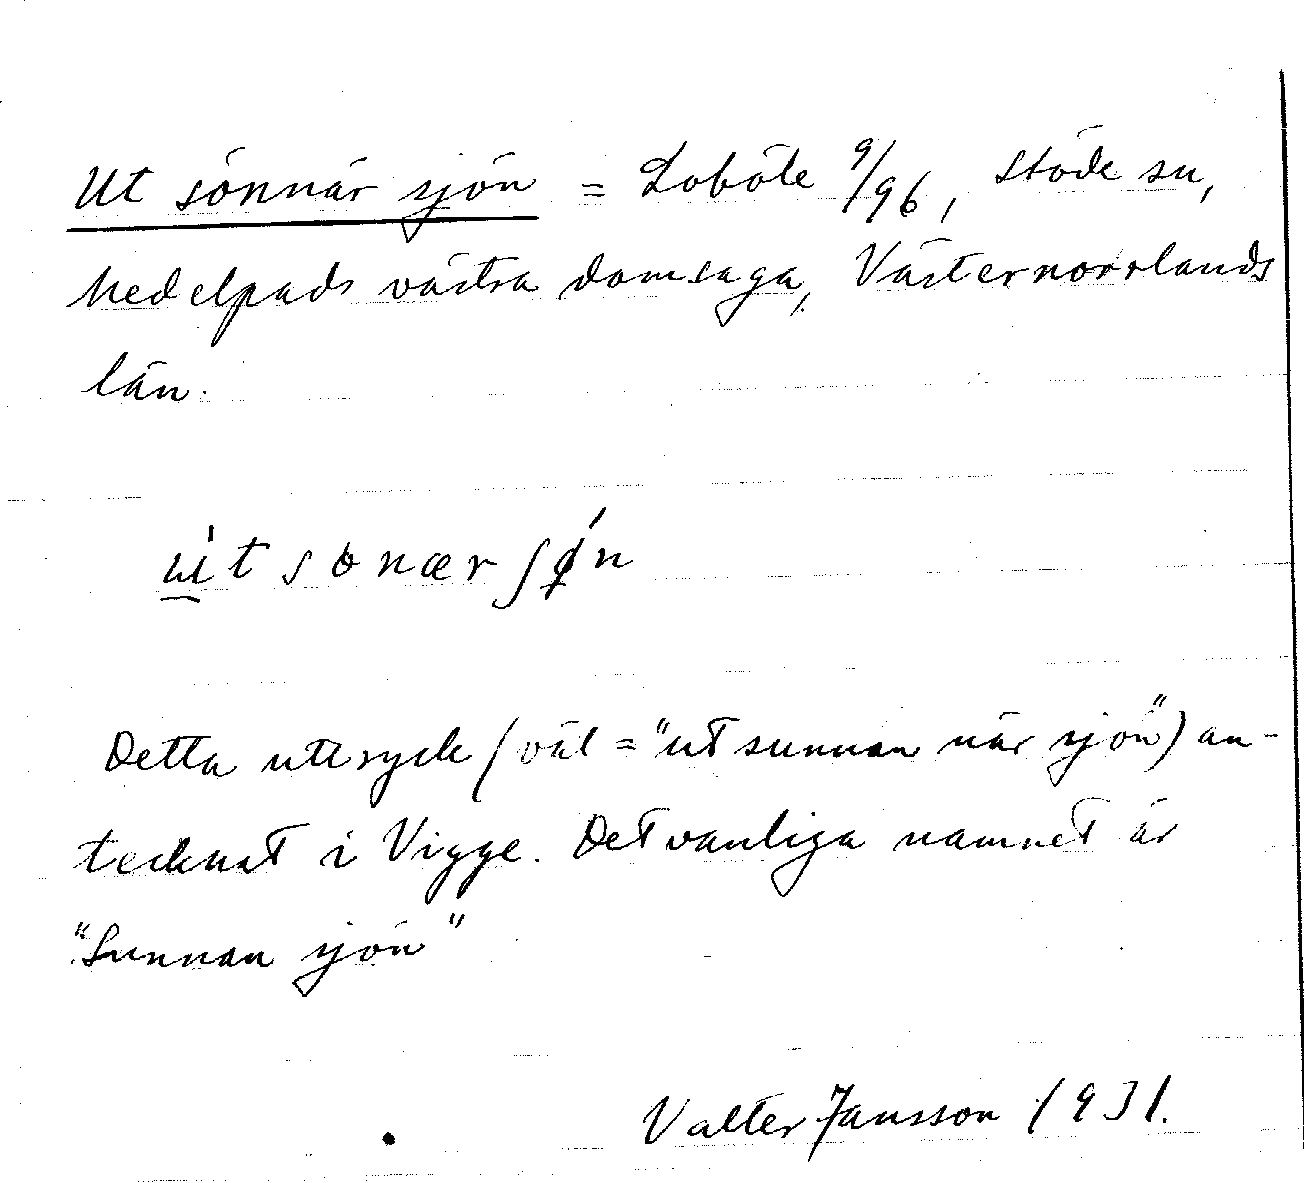 Ut sönnär sjön = Loböle 9/96, Stöde sn,
Medelpads västra domsaga, Västernorrlands
län.
út sonær ʃǿn
Detta uttryck (väl = "ut sunnan när sjön") an-
tecknat i Vigge. Det vanliga namnet är
"Sunnan sjön"
Valter Jansson 1931.